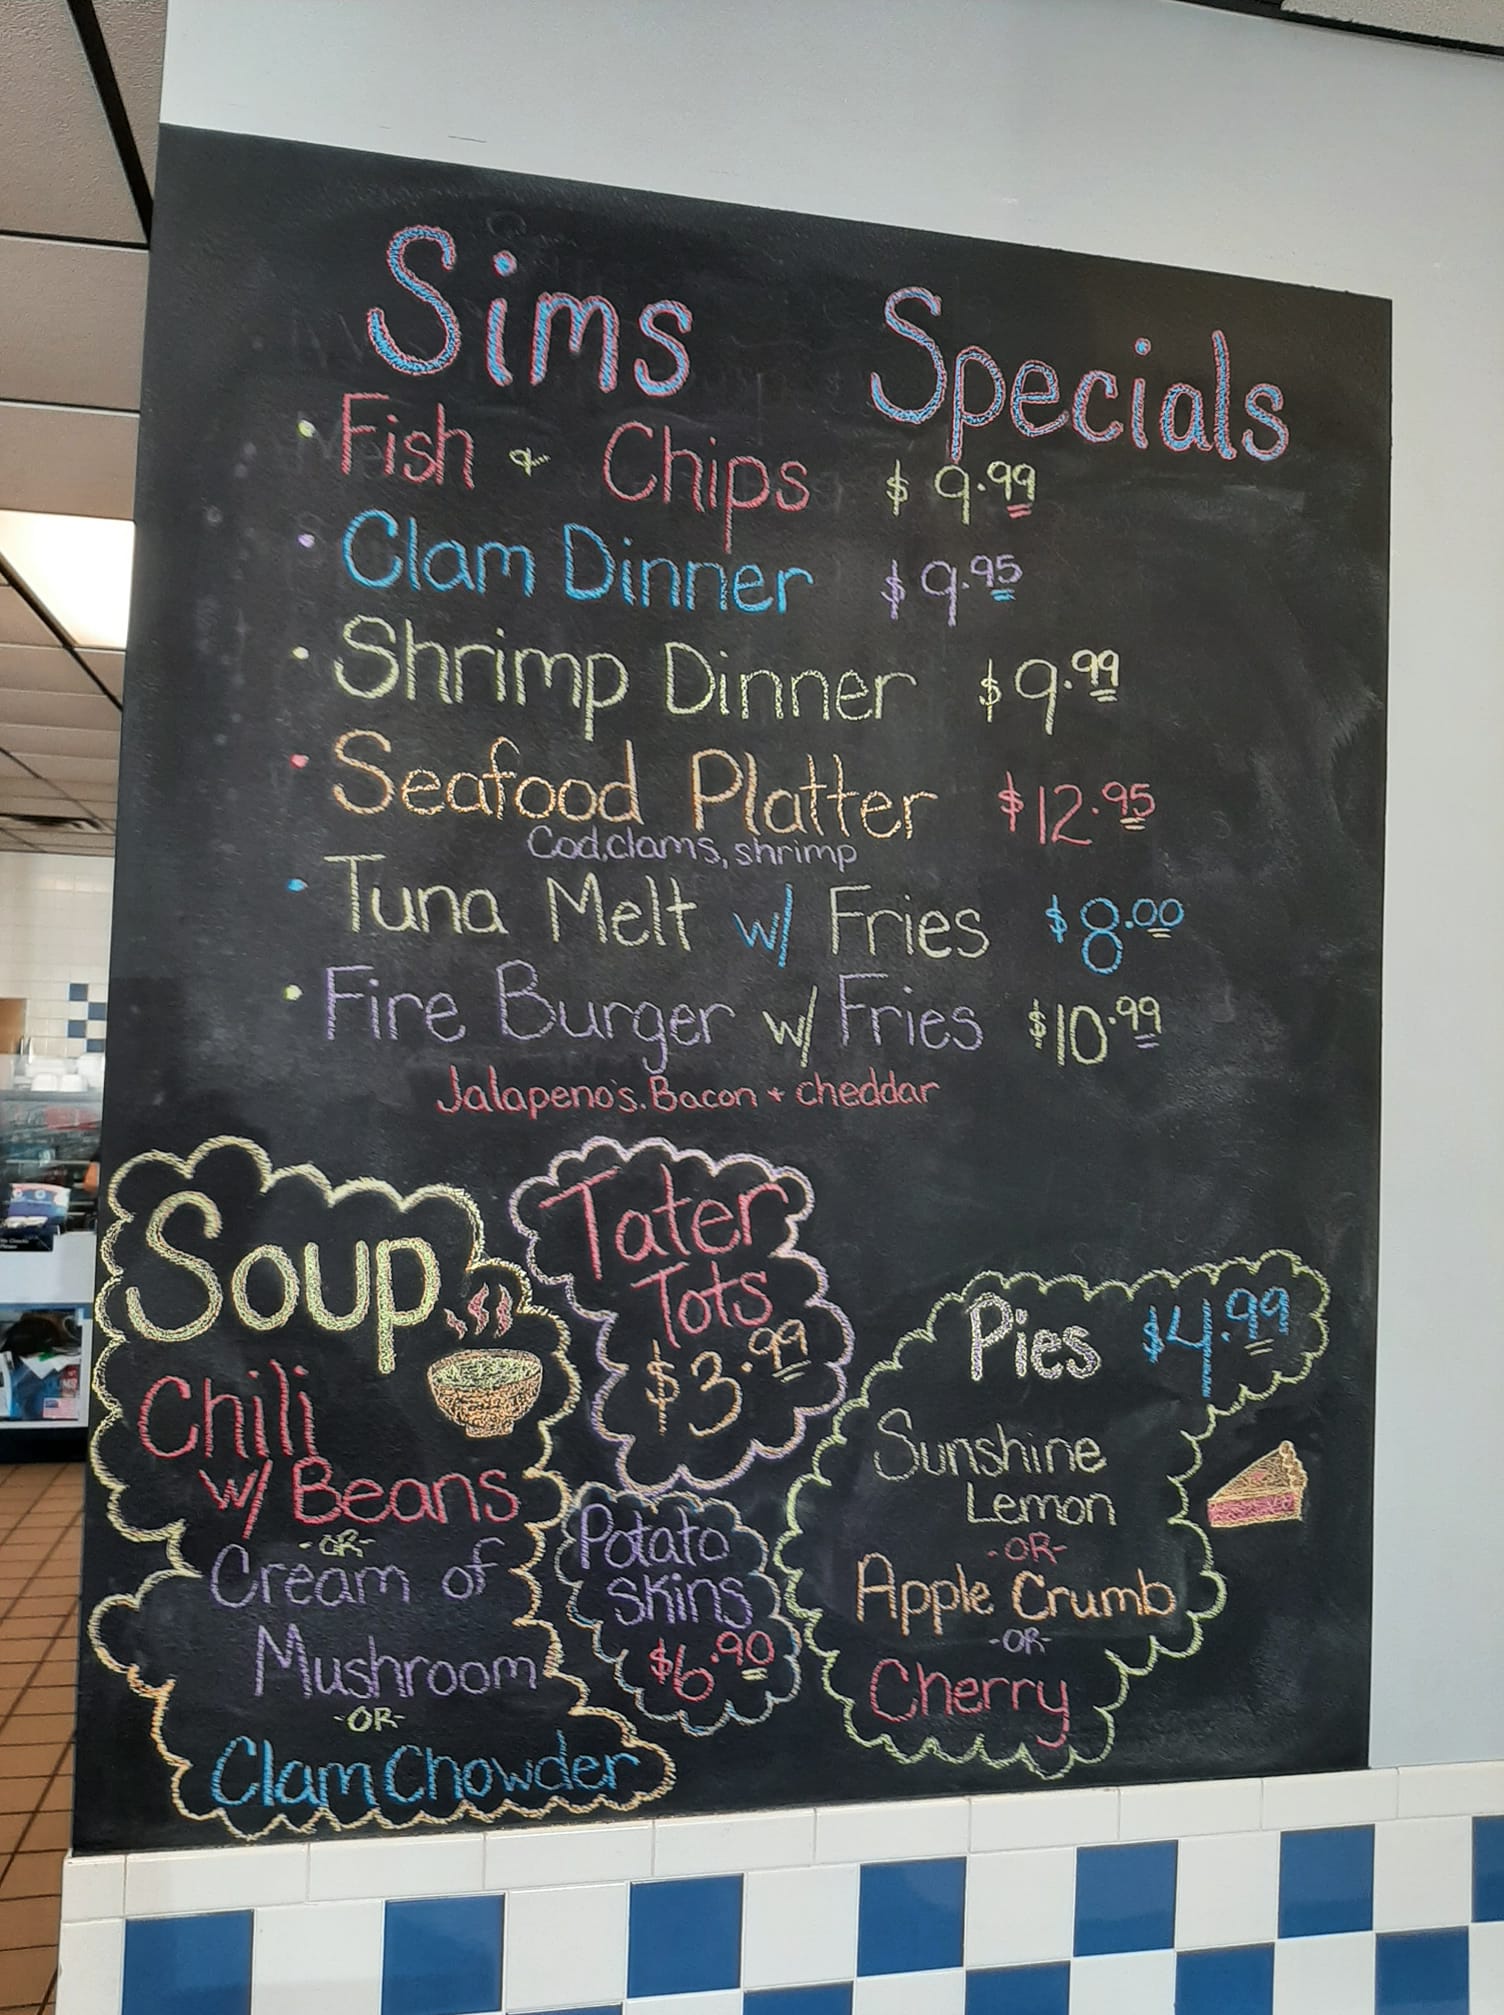 Sims Specials
• Fish & Chips $9.99
• Clam Dinner $9.95
• Shrimp Dinner $9.99
• Seafood Platter $12.95
Cod, clams, shrimp
• Tuna Melt w/ Fries $8.00
• Fire Burger w/ Fries $10.99
Jalapeno's. Bacon + cheddar
Soup
Chili
w/ Beans
-OR-
Cream of
Mushroom
-OR-
Clam Chowder
Tater
Tots
$3.99
Potato
skins
$6.90
Pies $4.99
Sunshine
Lemon
-OR-
Apple Crumb
-OR-
Cherry